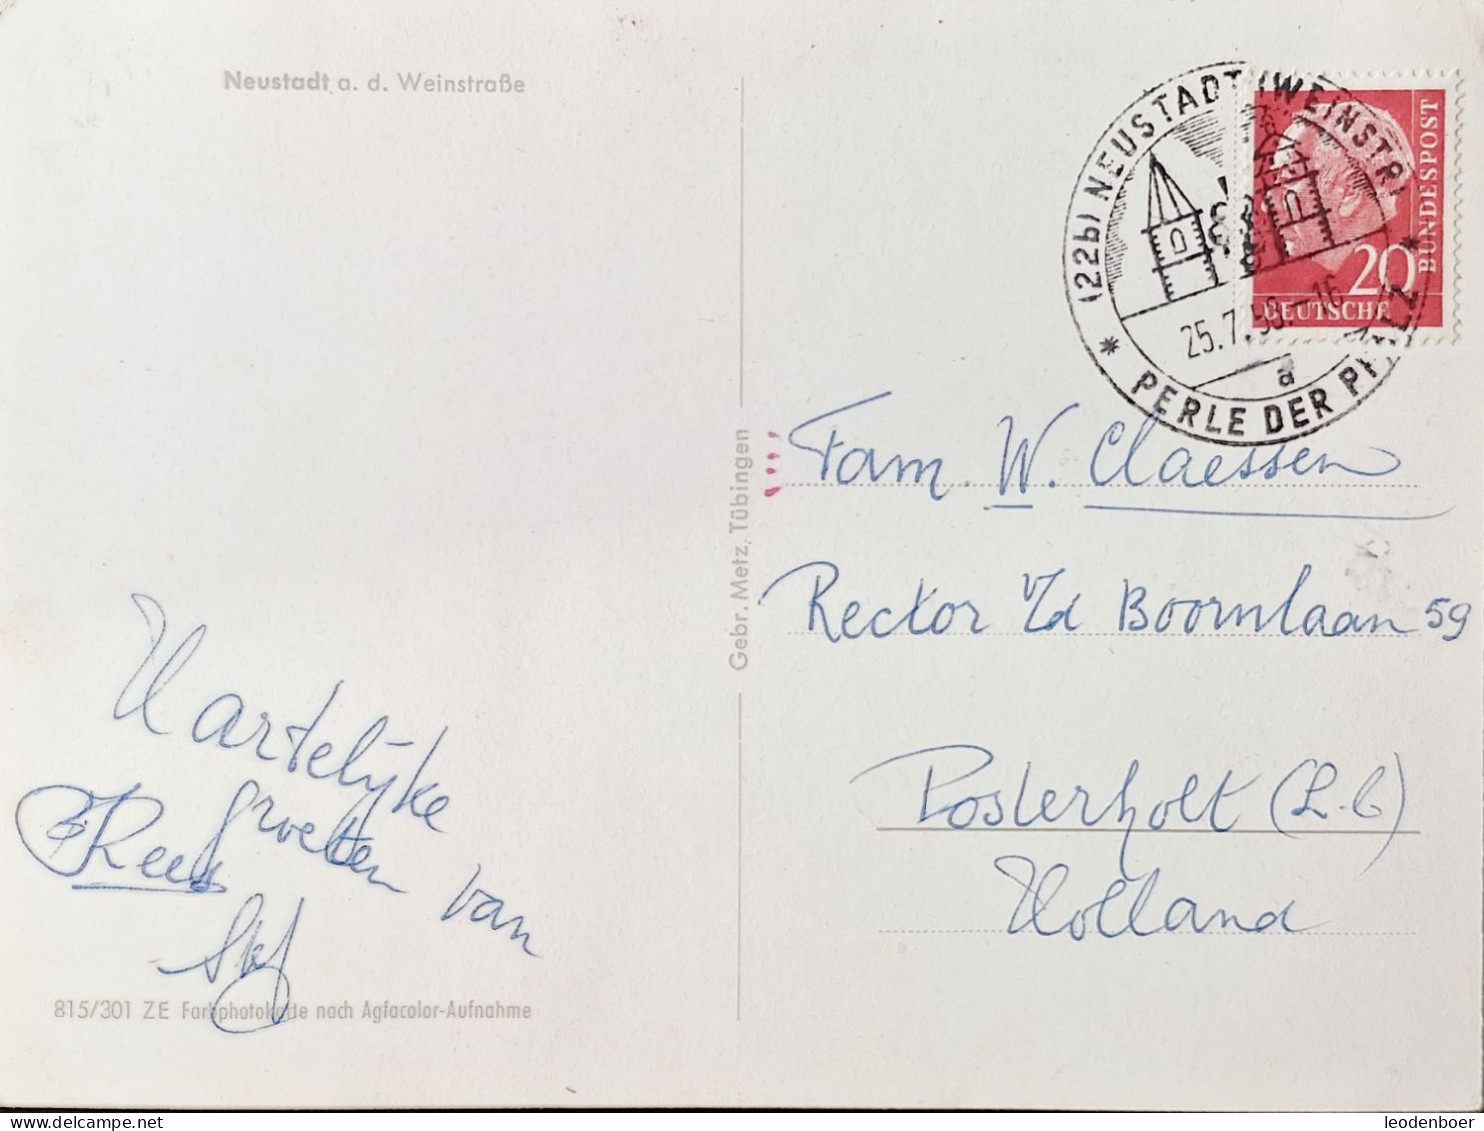 Neustadt a. d. Weinstraße
(22b) NEUSTADT (WEINSTR)
25.7.58.-16
a
* PERLE DER PFALZ *
DEUTSCHE BUNDESPOST
20
Gebr. Metz, Tübingen
Fam. W. Claessen
Rector v/d Boornlaan 59
Posterholt (L.b)
Holland
Hartelijke
groeten van
Rees
815/301 ZE Farbphotokarte nach Agfacolor-Aufnahme
leodenboer